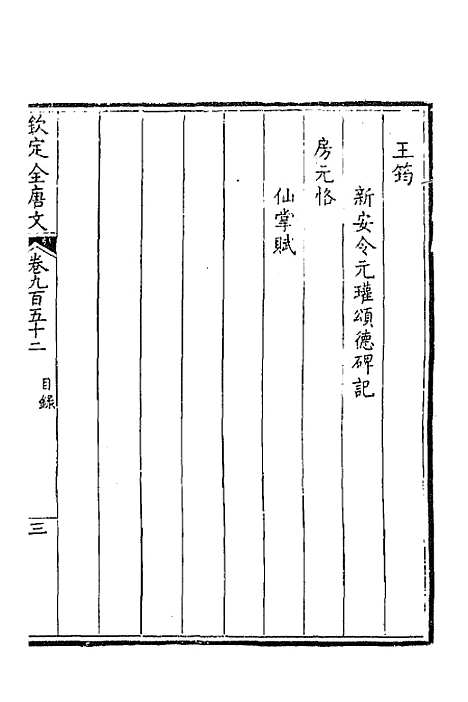 王筠
新安令元瓘頌德碑記
房元恪
仙掌賦
欽定全唐文
卷九百五十二
目錄
三